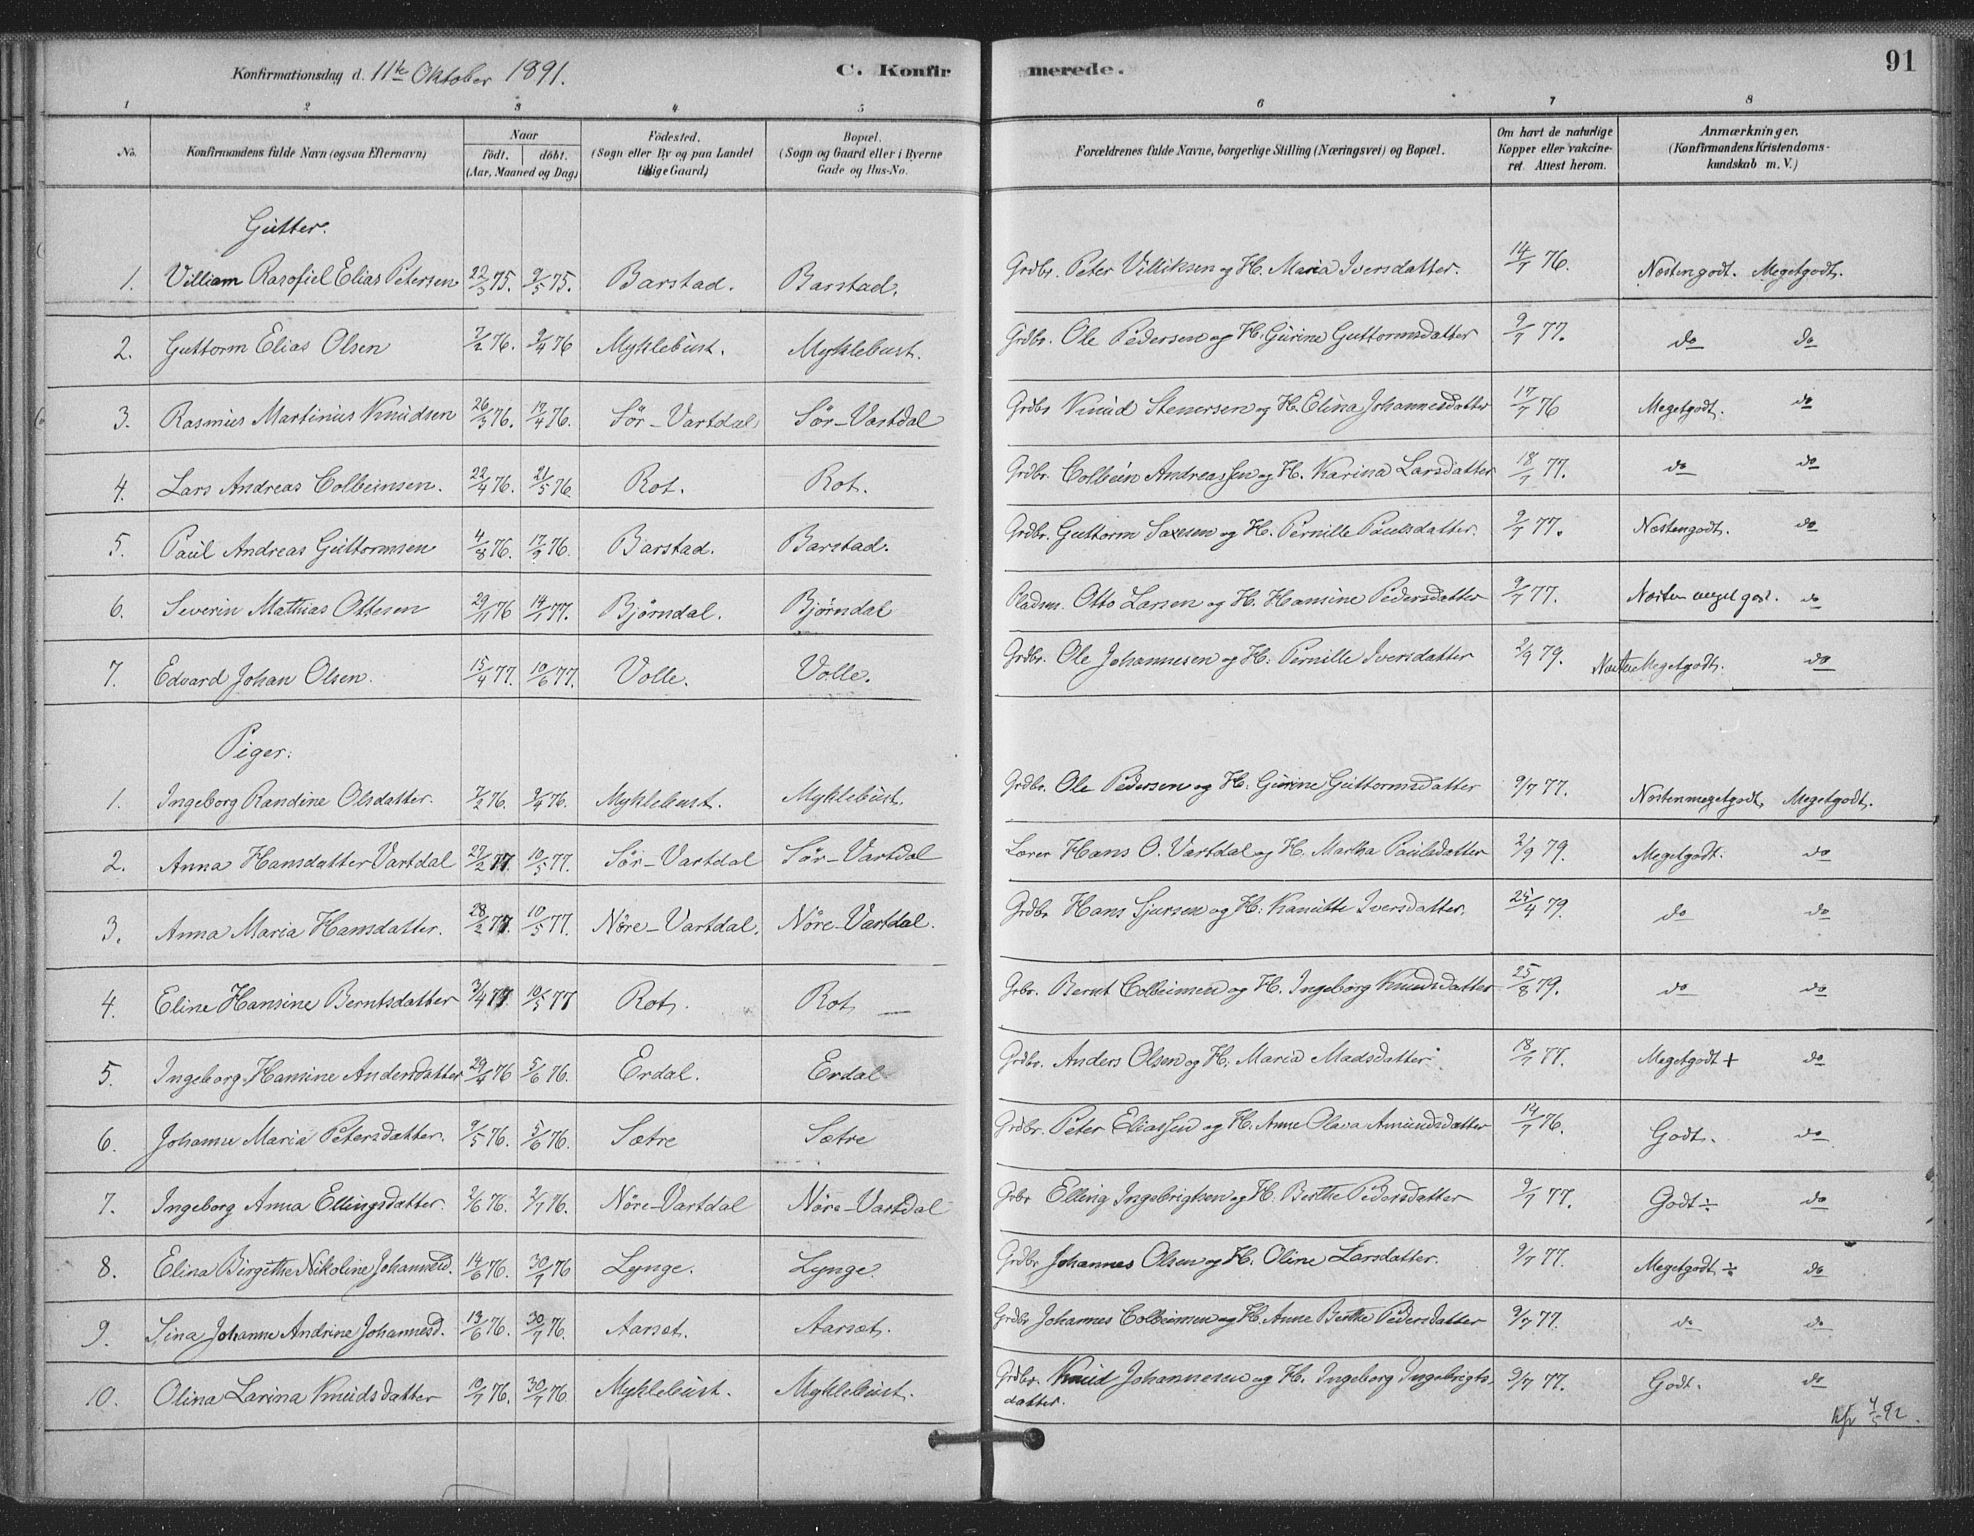 Konfirmationsdag d. 11te Oktober 1891. C. Konfirmerede. 91
1 2 3 4 5 6 7 8
No. Konfirmandens fulde Navn (ogsaa Efternavn) Naar født. døbt. (Aar, Maaned og Dag) Fødested. (Sogn eller By og paa Landet tillige Gaard) Bopæl. (Sogn og Gaard eller i Byerne Gade og Hus-No. Forældrenes fulde Navne, borgerlige Stilling (Næringsvei) og Bopæl. Om havt de naturlige Kopper eller vakcineret. Attest herom. Anmærkninger. (Konfirmandens Kristendomskundskab m. V.)
Gutter.
1. Villiam Rasofiel Elias Petersen 22/3 75. 9/5 75. Barstad. Barstad. Grdbr. Peter Villiksen og H. Maria Iversdatter. 14/7 76. Næsten godt. Megetgodt.
2. Guttorm Elias Olsen 7/2 76. 9/4 76 Myklebust. Myklebust. Grdbr. Ole Pedersen og H. Gurine Guttormsdatter 9/7 77. do do
3. Rasmus Martinus Knudsen 26/3 76. 17/4 76. Sør-Vartdal Sør-Vartdal Grdbr Knud Stenersen og H. Elina Johannesdatter 17/7 76 Megetgodt. do
4. Lars Andreas Colbeinsen. 22/4 76. 21/5 76 Rot. Rot. Grdbr. Colbein Andreassen og H. Karina Larsdatter 18/7 77. do do
5. Paul Andreas Guttormsen 4/8 76. 17/9 76. Barstad. Barstad. Grdbr. Guttorm Saxesen og H. Pernille Paulsdatter. 9/7 77. Næstengodt. do
6. Severin Mathias Ottesen 29/11 76 14/1 77. Bjørndal. Bjørndal Pladsm. Otto Larsen og H. Hansine Pedersdatter 9/7 77. Næsten meget godt. do
7. Edvard Johan Olsen. 15/4 77. 10/6 77. Volle. Volle. Grdbr. Ole Johannesen og H. Pernille Iversdatter 2/9 79. Næsten Megetgodt. do
Piger.
1. Ingeborg Randine Olsdatter. 7/2 76. 9/4 76. Myklebust. Myklebust. Grdbr. Ole Pedersen og H. Gurine Guttormsdatter 9/7 77. Næstenmegetgodt. Megetgodt.
2. Anna Hansdatter Vartdal 27/2 77. 10/5 77. Sør-Vartdal Sør-Vartdal Lærer Hans O. Vartdal og H. Martha Paulsdatter 2/9 79. Megetgodt. do
3. Anna Maria Hansdatter. 28/2 77. 10/5 77. Nøre-Vartdal. Nøre-Vartdal. Grdbr. Hans Sjursen og H. Kanutte Iversdatter. 25/4 79. do do
4. Eline Hansine Berntsdatter 3/4 77 10/5 77 Rot. Rot. Grbr. Bernt Colbeinsen og H. Ingeborg Knudsdatter 25/8 79. do do
5. Ingeborg Hansine Andersdatter 29/4 76 5/6 76. Erdal. Erdal Grdbr. Anders Olsen og H. Maria Madsdatter 18/7 77. Megetgodt + do
6. Johanne Maria Petersdatter. 9/5 76. 5/6 76. Sætre Sætre Grdbr. Peter Eliassen og H. Anne Olava Amundsdatter 14/7 76. Godt. do
7. Ingeborg Anna Ellingsdatter. 2/6 76. 2/7 76. Nøre-Vartdal Nøre-Vartdal Grbr Elling Ingebrigtsen og H. Berthe Pedersdatter 9/7 77. Godt ÷ do
8. Elina Birgethe Nikoline Johannesd. 14/6 76. 30/7 76 Lynge. Lynge. Grdbr Johannes Olsen og H. Oline Larsdatter. 9/7 77. Megetgodt ÷ do
9. Sina Johanne Andrine Johannesd. 13/6 76. 30/7 76. Aarset. Aarset. Grdbr Johannes Colbeinsen og H. Anne Berthe Pedersdatter 9/7 77. do do
10. Olina Larina Knudsdatter 10/7 76. 30/7 76. Myklebust. Myklebust. Grdbr. Knud Johannesen og H. Ingeborg Ingebrigtsdatter. 9/7 77. Godt. do
4/5 92.